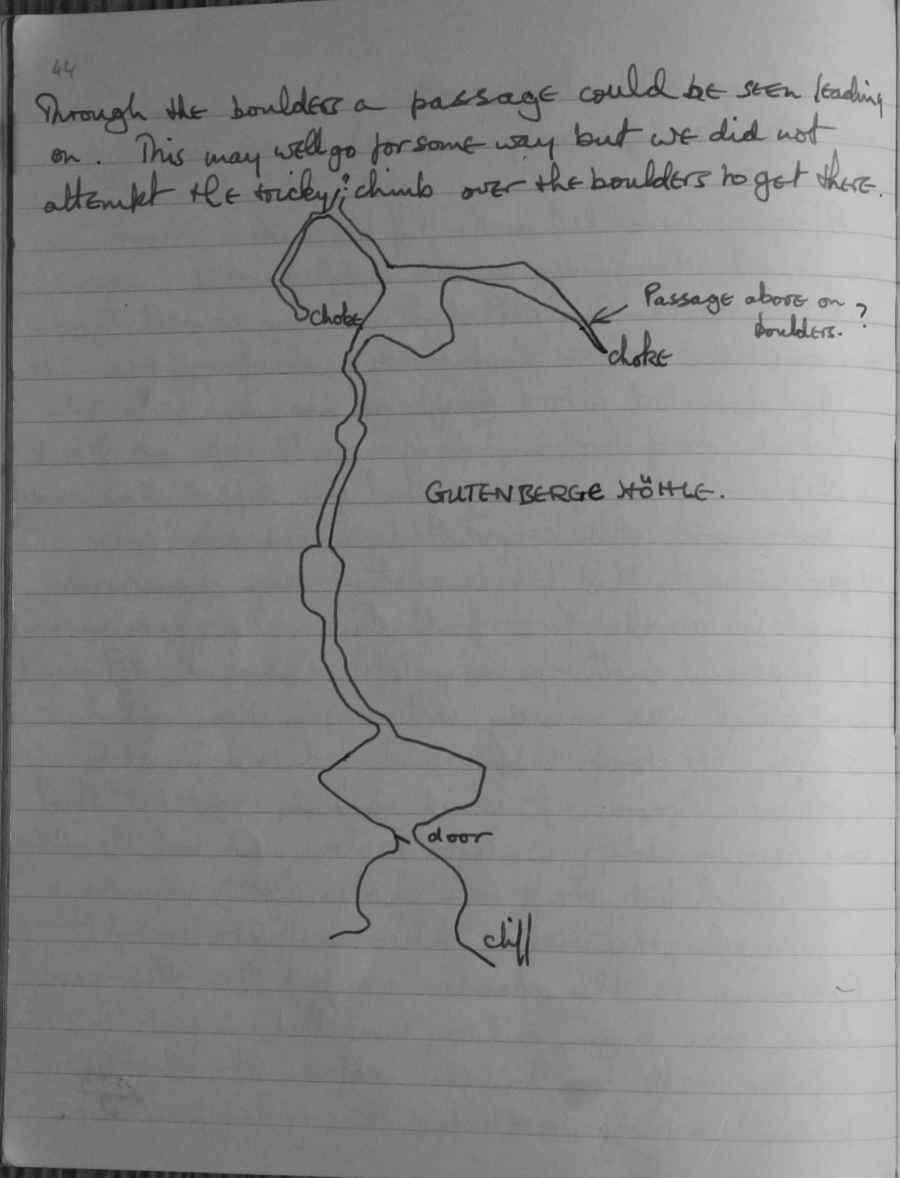 44
Through the boulders a passage could be seen leading
on. This may well go for some way but we did not
attempt the tricky climb over the boulders to get there.
choke
Passage above on
boulders. ?
choke
GUTENBERGE HÖHLE.
door
cliff